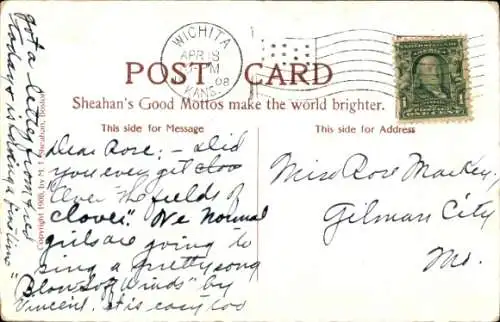 WICHITA
APR 18
M
08
KANS.
POST CARD
Sheahan's Good Mottos make the world brighter.
This side for Message
This side for Address
Copyright 1908, by M. T. Sheahan, Boston
Dear Rose: – Did
you ever get
"Over the fields of
Clover". We Normal
girls are going to
sing a pretty song
"Blow Soft Winds" by
Vincent. It is easy too
got a letter from
today
Miss Rose Mackey,
Gilman City
Mo.
1